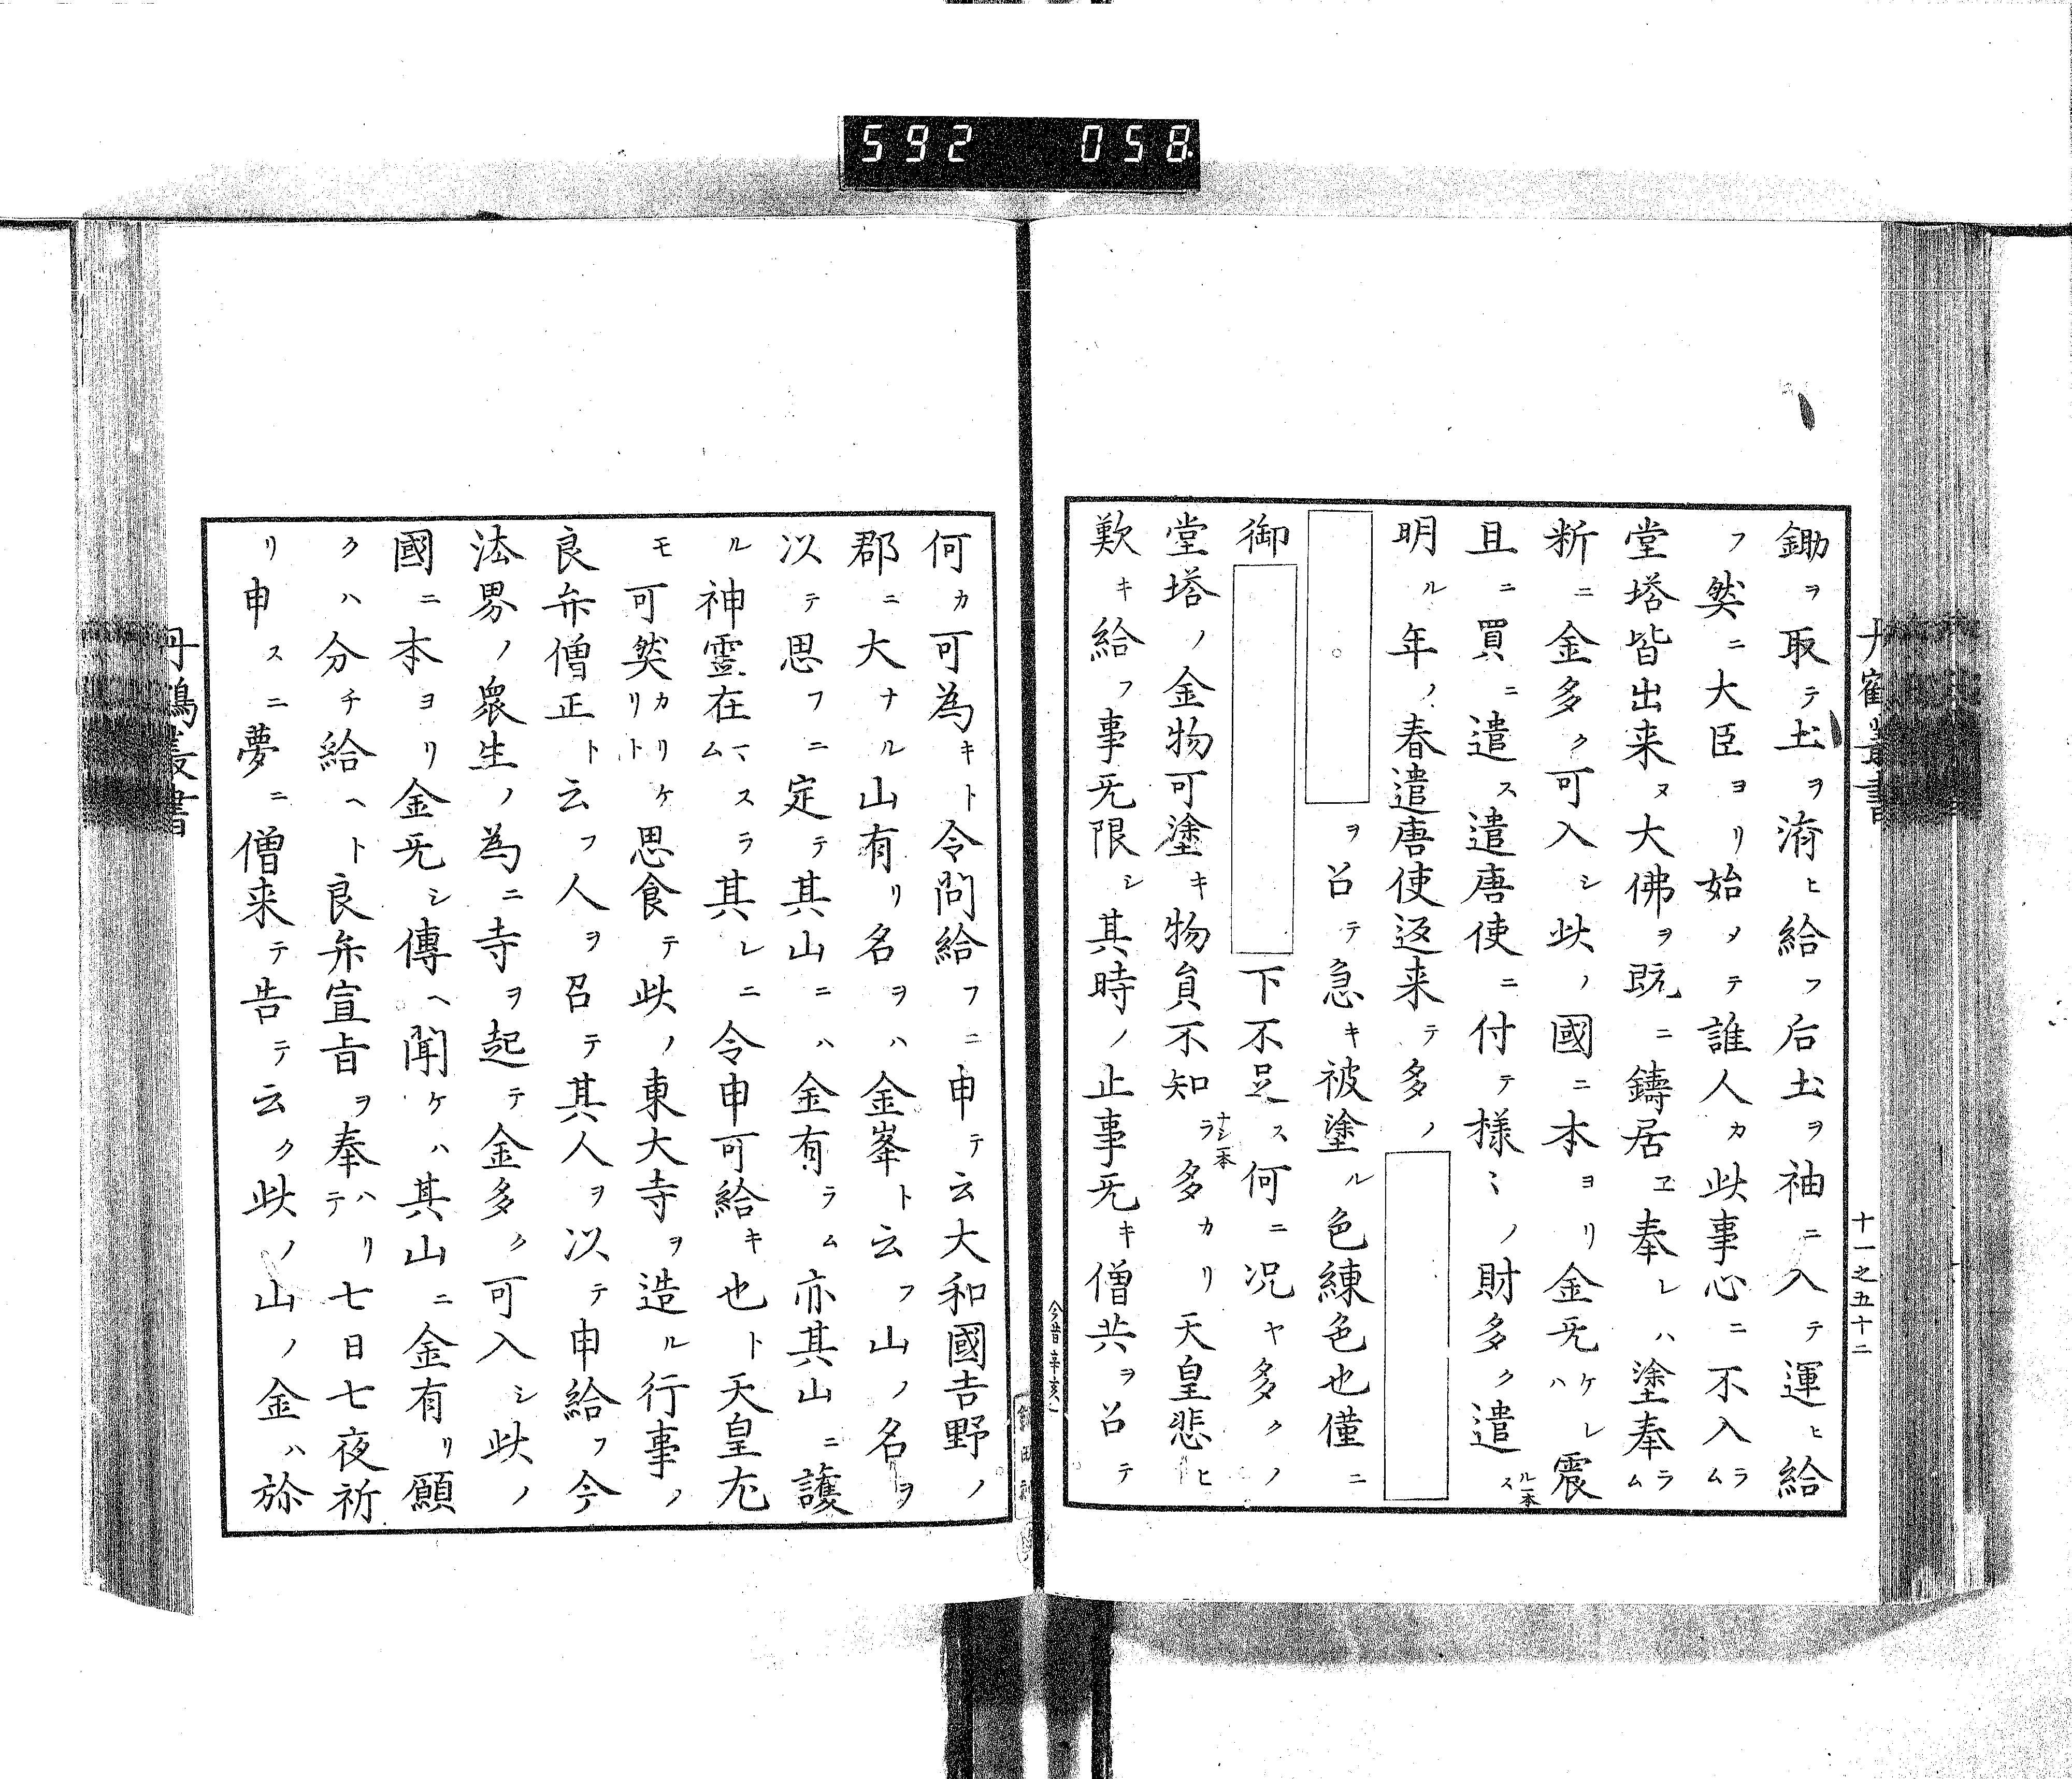 592 058
丹鶴叢書
十一之五十二
鋤ヲ取テ土ヲ済ヒ給フ后土ヲ袖ニ入テ運ヒ給
フ然ニ大臣ヨリ始メテ誰人カ此事心ニ不入ラム
堂塔皆出来ヌ大佛ヲ既ニ鑄居ヱ奉レハ塗奉ラム
断ニ金多ク可入シ此ノ國ニ本ヨリ金无ケレハ震
且ニ買ニ遣ス遣唐使ニ付テ様〻ノ財多ク遣スル一本
明ル年ノ春遣唐使返来テ多ノ
。ヲ召テ急キ被塗ル色練色也僅ニ
御下不足ス何ニ况ヤ多クノ
堂塔ノ金物可塗キ物員不知ラナシ一本多カリ天皇悲ヒ
歎キ給フ事无限シ其時ノ止事无キ僧共ヲ召テ
今昔 辛亥
何カ可為キト令問給フニ申テ云大和國吉野ノ
郡ニ大ナル山有リ名ヲハ金峯ト云フ山ノ名ヲ
以テ思フニ定テ其山ニハ金有ラム亦其山ニ護
ル神靈在マスラム其レニ令申可給キ也ト天皇尤
モ可然カリケリト思食テ此ノ東大寺ヲ造ル行事ノ
良弁僧正ト云フ人ヲ召テ其人ヲ以テ申給フ今
法界ノ衆生ノ為ニ寺ヲ起テ金多ク可入シ此ノ
國ニ本ヨリ金无シ傳ヘ聞ケハ其山ニ金有リ願
クハ分チ給ヘト良弁宣旨ヲ奉ハリテ七日七夜祈
リ申スニ夢ニ僧来テ告テ云ク此ノ山ノ金ハ弥
丹鶴叢書